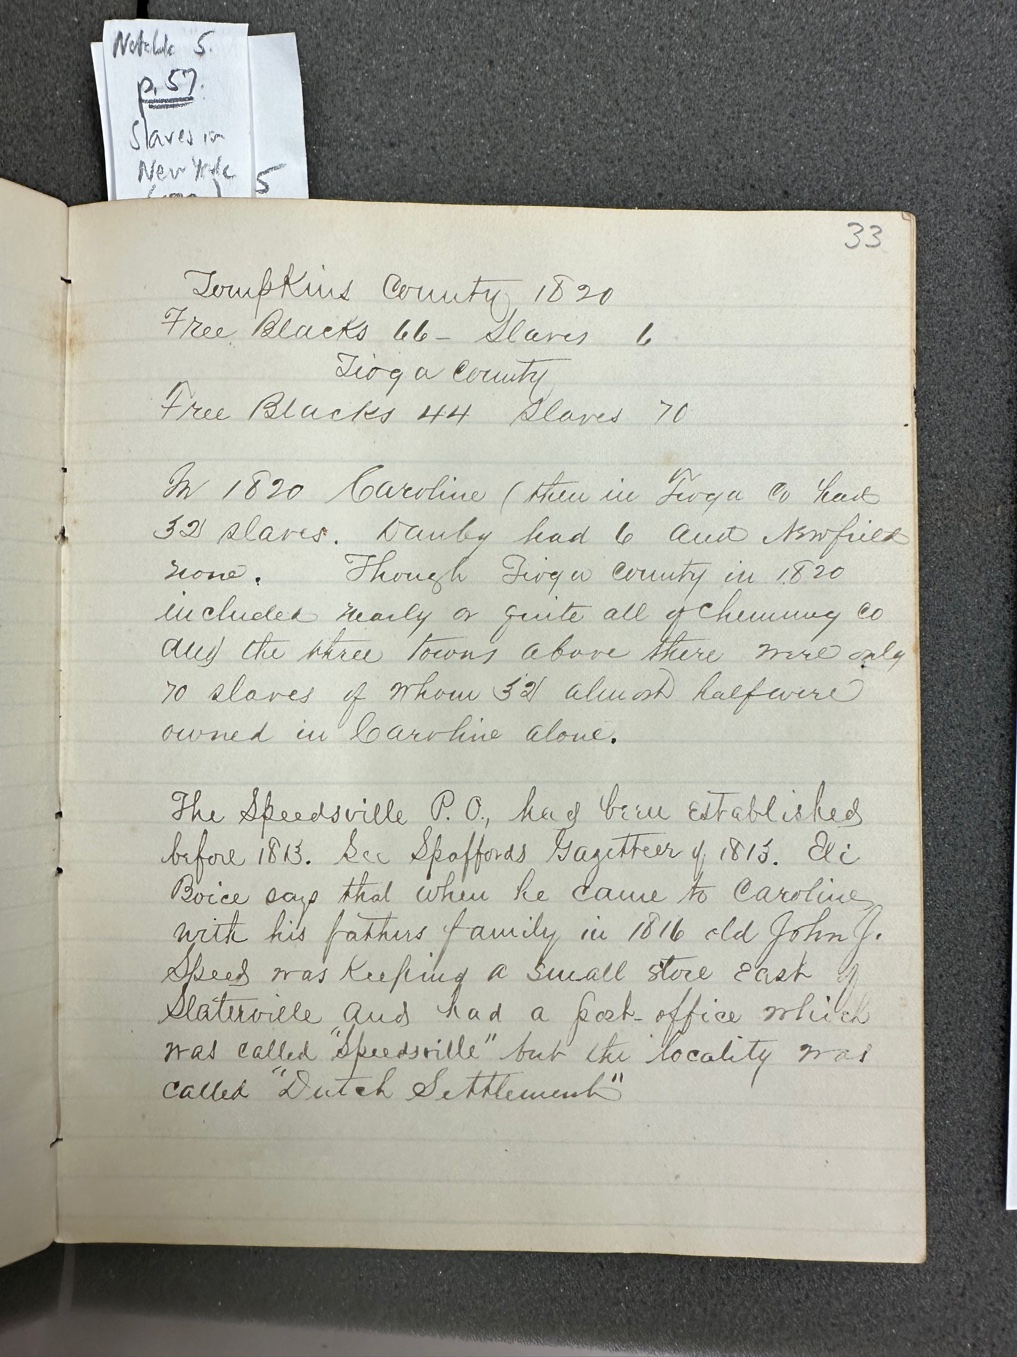 Notebk 5.
p. 57.
Slaves in
New York
5
33
Tompkins County 1820
Free Blacks 66 - Slaves 6
Tioga County
Free Blacks 44 Slaves 70
In 1820 Caroline (then in Tioga Co had
32 slaves. Danby had 6 and Newfield
none. Though Tioga County in 1820
included nearly or quite all of Chemung Co
and the three towns above there were only
70 slaves of whom 32 almost half were
owned in Caroline alone.
The Speedsville P. O., had been established
before 1813. See Spaffords Gazetteer of 1813. Eli
Boice says that when he came to Caroline
with his fathers family in 1816 old John J.
Speed was keeping a small store East of
Slaterville and had a post-office which
was called "Speedsville" but the locality was
called "Dutch Settlement"